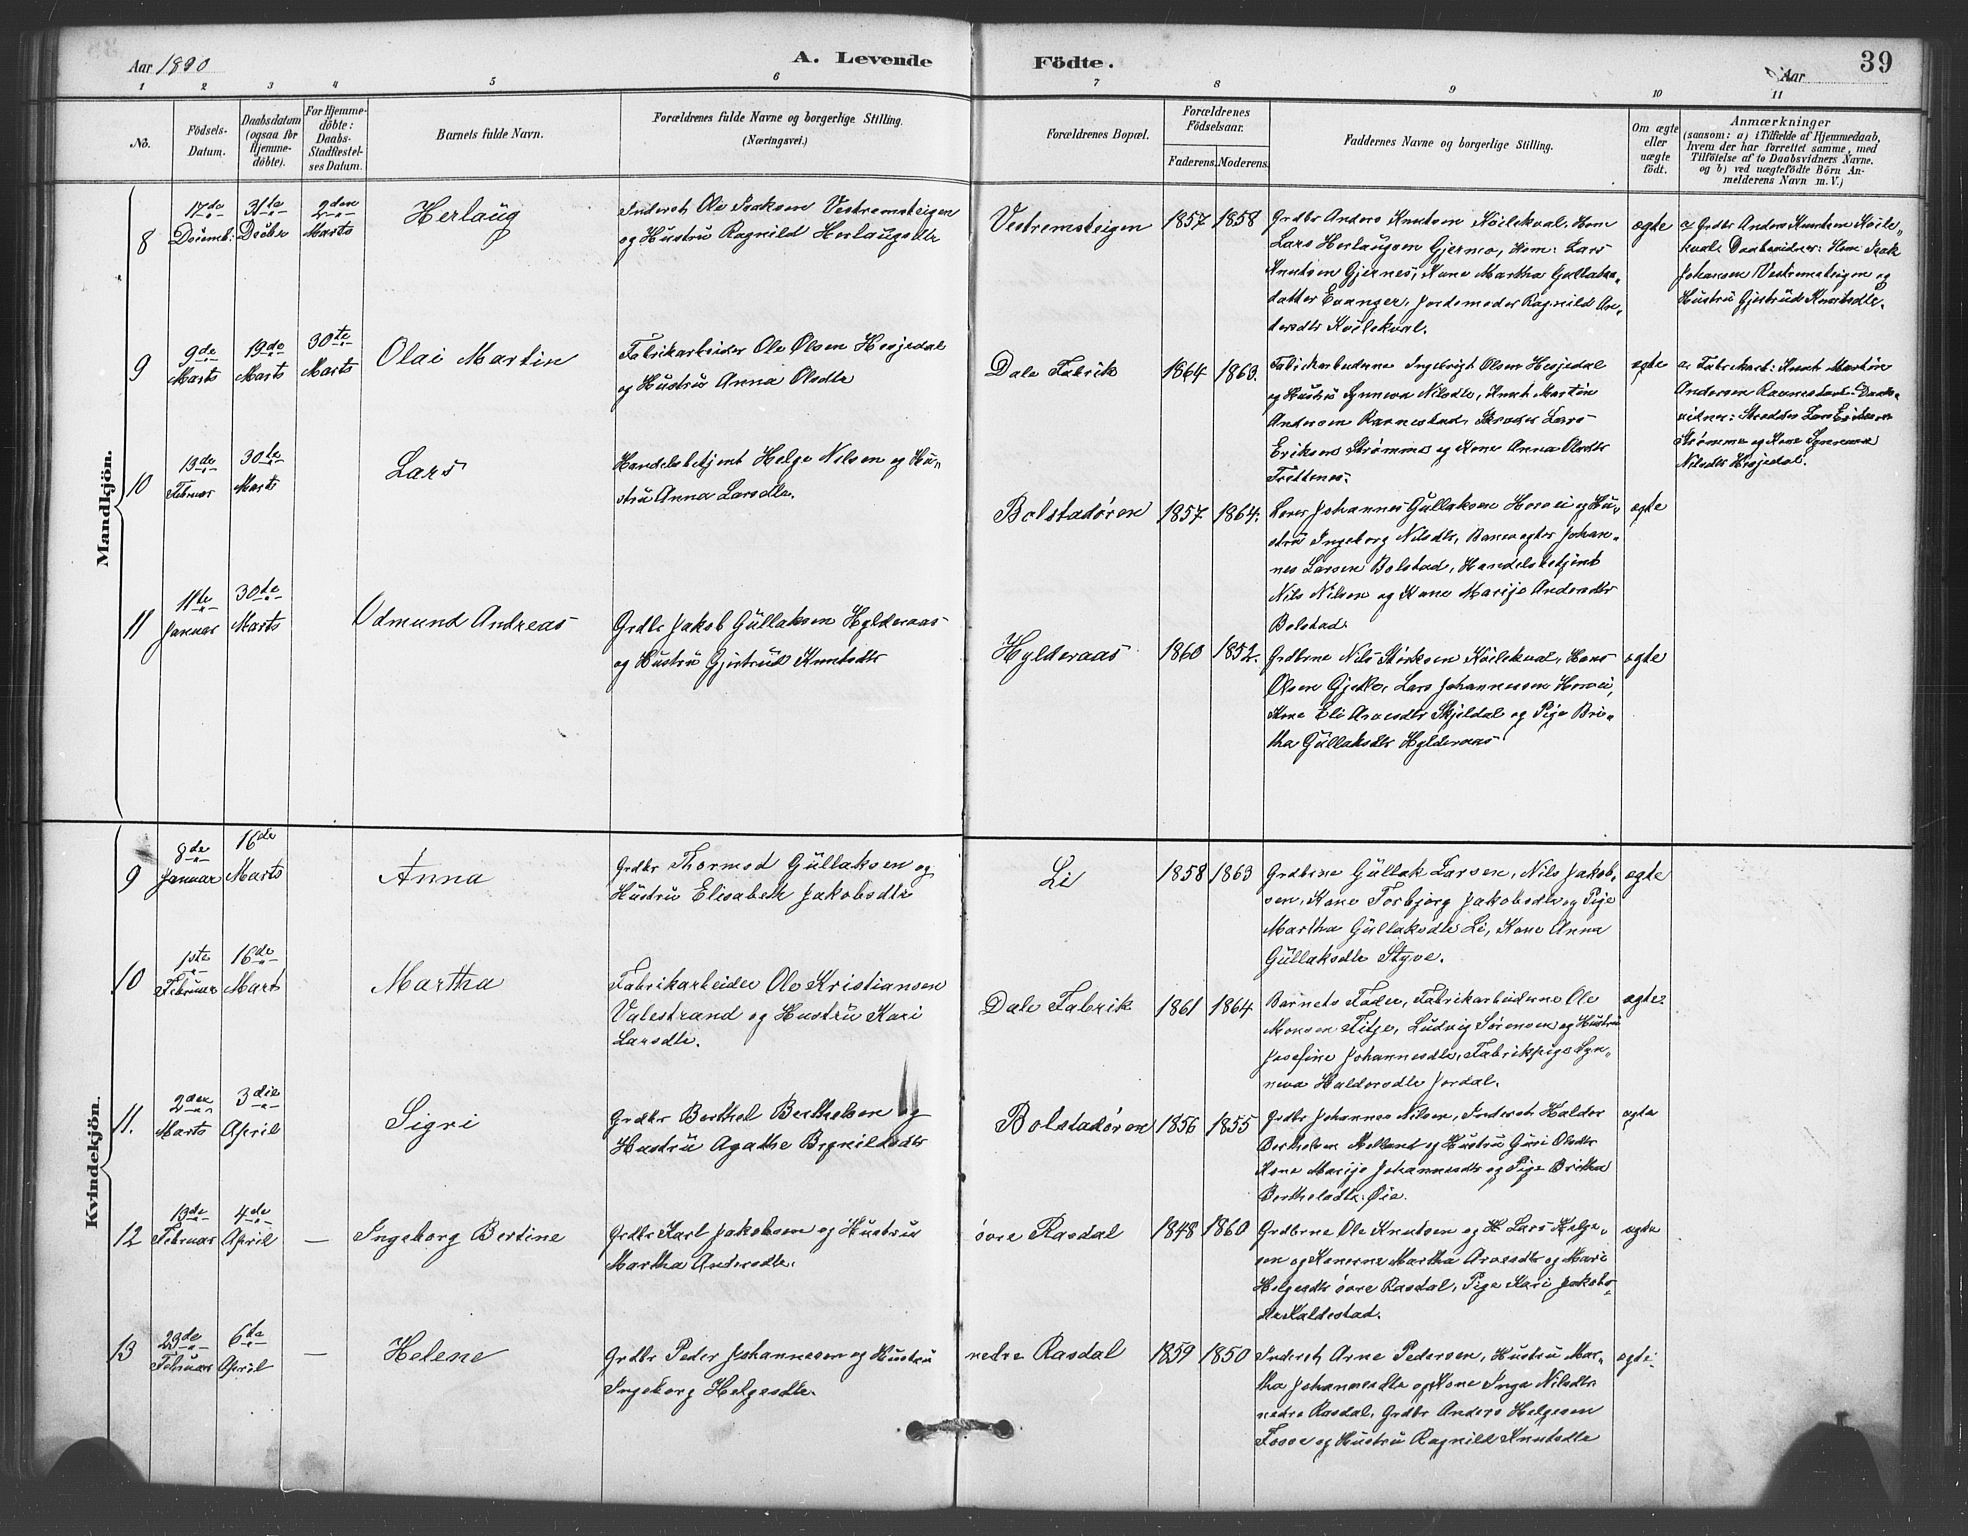 Aar 1890
A. Levende
Födte.
39
Aar
1 2 3 4 5 6 7 8 9 10 11
No.
Födsels-
Datum.
Daabsdatum
(ogsaa for
Hjemme-
döbte).
For Hjemme-
döbte:
Daabs-
Stadfæstel-
ses Datum.
Barnets fulde Navn.
Forældrenes fulde Navne og borgerlige Stilling.
(Næringsvei.)
Forældrenes Bopæl.
Forældrenes
Födselsaar.
Faderens. Moderens.
Faddernes Navne og borgerlige Stilling.
Om ægte
eller
uægte
födt.
Anmærkninger
(saasom: a) i Tilfælde af Hjemmedaab,
hvem der har forrettet samme, med
Tilföielse af to Daabsvidners Navne.
og b) ved uægtefödte Börn An-
melderens Navn m. V.)
Mandkjön.
8
17de
Decemb:
31te
Decbr
2den
Marts
Herlaug
Inderst Ole Isaksen Vestremsteigen
og Hustru Ragnild Herlaugsdtr
Vestremsteigen
1857 1858
Grdbr Anders Knutsen Köilekval, Kone
Lars Herlaugsen Gjermo, Kone: Lars
Knutsen Gjernes, Kone Martha Gullaks-
datter Evanger, Jordemoder Ragnild An-
dersdtr Köilekval.
ægte
a Grdbr Anders Knutsen Köile-
kval. Daabsvidner: Hsm Isak
Johansen Vestremsteigen og
Hustru Gjertrud Knutsdtr.
9
9de
Marts
19de
Marts
30te
Marts
Olai Martin
Fabrikarbeider Ole Olsen Hesjedal
og Hustru Anna Olsdtr
Dale Fabrik
1864 1863.
Fabrikarbeiderne Ingebrigt Olsen Hesjedal
og Hustru Synneva Nilsdtr, Knut Martin
Andersen Ravnestad, Skræder Lars
Eriksen Strømme og Kone Anna Olsdtr
Trettenes.
ægte
a. Fabrikarb: Knut Martin
Andersen Ravnestad. Daabs-
vidner: Skræder Lars Eriksen
Strømme og Kone Synneva
Nilsdtr Hesjedal.
10
19de
Februar
30te
Marts
Lars
Handelsbetjent Helge Nilsen og Hu-
stru Anna Larsdtr.
Bolstadøren
1857 1864.
Lærer Johannes Gullaksen Horvei og Hu-
stru Ingeborg Nilsdtr, Banevogter Johan-
nes Larsen Bolstad, Handelsbetjent
Nils Nilsen og Kone Marije Andersdtr
Bolstad.
ægte
11
11te
Januar
30te
Marts
Odmund Andreas
Grdbr Jakob Gullaksen Hylderaas
og Hustru Gjertrud Knutsdtr
Hylderaas
1860 1852.
Grdbrne Nils Størksen Köilekval, Hans
Olsen Gjelle, Lars Johannessen Horvei,
Kone Eli Arnesdtr Skjeldal og Pige Bri-
tha Gullaksdtr Hylderaas
ægte
Kvindekjön.
9
8de
Januar
16de
Marts
Anna
Grdbr Thormod Gullaksen og
Hustru Elisabeth Jakobsdtr
Li
1858 1863
Grdbrne Gullak Larsen, Nils Jakob-
sen, Kone Torbjørg Jakobsdtr og Pige
Martha Gullaksdtr Li, Kone Anna
Gullaksdtr Styve.
ægte
10
1ste
Februar
16de
Marts
Martha
Fabrikarbeider Ole Kristiansen
Valestrand og Hustru Kari
Larsdtr.
Dale Fabrik
1861 1864
Barnets Fader, Fabrikarbeiderne Ole
Monsen Titje, Ludvig Sørensen og Hustru
Josefine Johannesdtr, Fabrikpige Syn-
neva Haldorsdtr Jordal.
ægte
11.
2den
Marts
3die
April
Sigri
Grdbr Berthel Berthelsen og
Hustru Agathe Brynildsdtr
Bolstadøren
1856 1855
Grdbr Johannes Nilsen, Inderst Haldor
Berthelsen Melland og Hustru Guri Olsdtr
Kone Marije Johannesdtr og Pige Britha
Bertheldtr. Øie.
ægte
12
19de
Februar
4de
April
—
Ingeborg Bertine
Grdbr Karl Jakobsen og Hustru
Martha Andersdtr.
övre Rasdal
1848 1860
Grdbrne Ole Knutsen og H Lars Helge-
sen og Konerne Martha Arnesdtr og Mari
Helgesdtr övre Rasdal, Pige Kari Jakobs-
dtr Kaldestad.
ægte
13
23de
Februar
6te
April
—
Helene
Grdbr Peder Johannesen og Hustru
Ingeborg Helgesdtr.
nedre Rasdal
1859 1850
Inderst Arne Pedersen, Hustru Mar-
tha Johannesdtr og Kone Inga Nilsdtr
nedre Rasdal, Grdbr Anders Helgesen
Fosse og Hustru Ragnild Knutsdtr
ægte